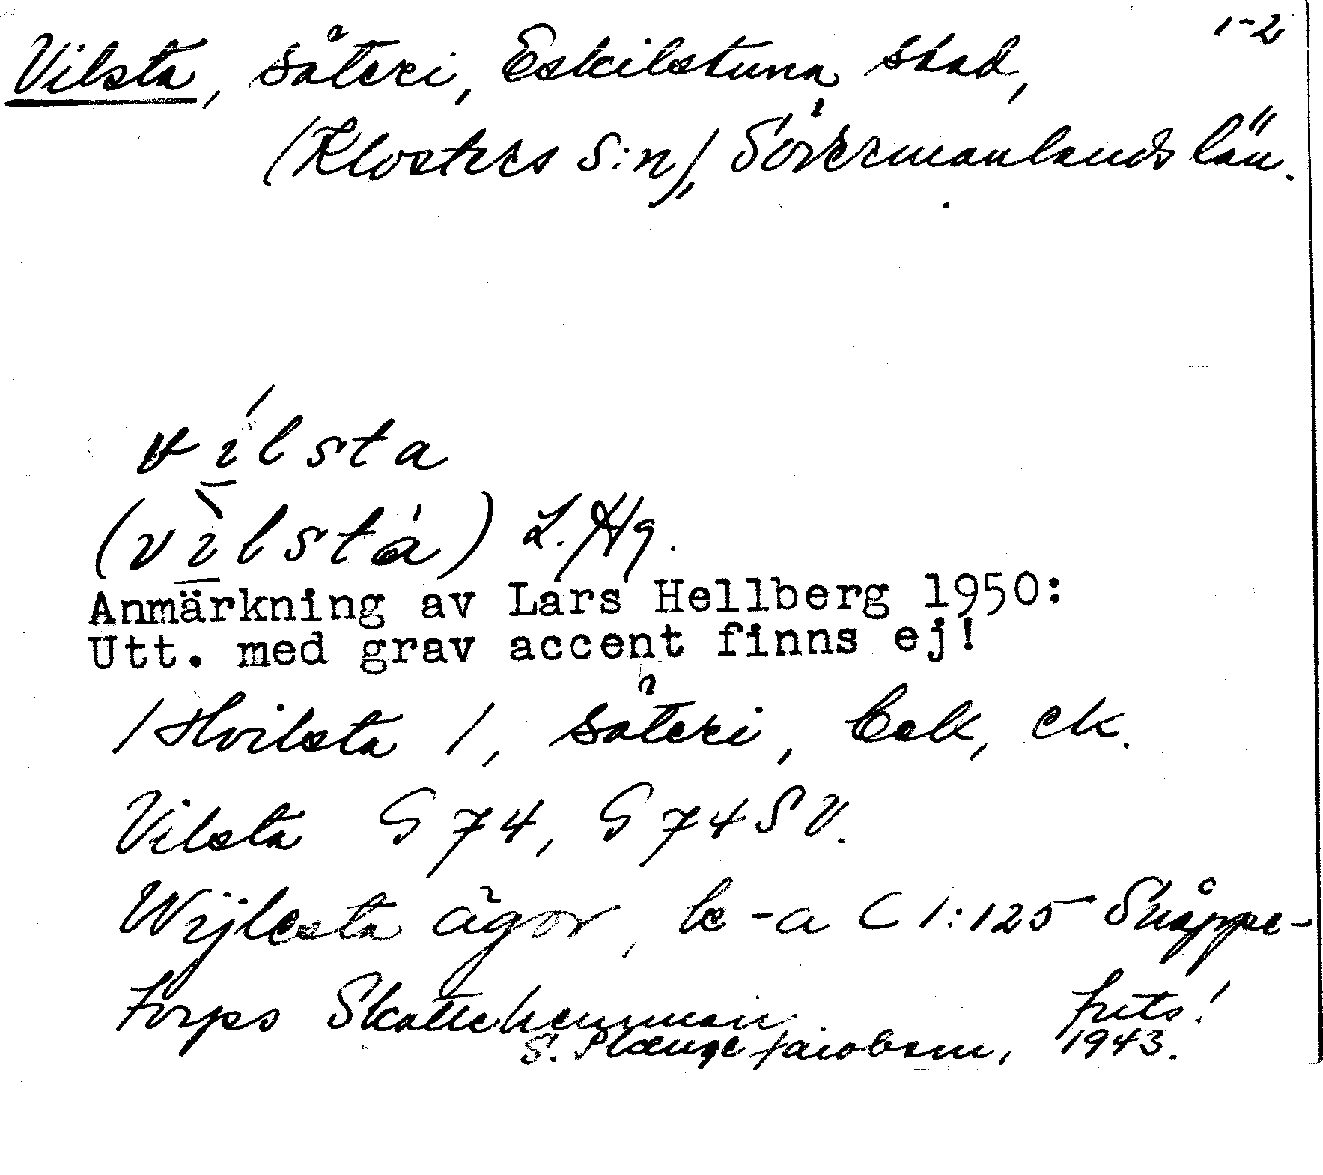 1-2
Vilsta, säteri, Eskilstuna stad,
(Klosters s:n), Södermanlands län.
ví̲lsta
(vì̲lstá) L. Hg.
Anmärkning av Lars Hellberg 1950:
Utt. med grav accent finns ej!
/Hvilsta/, säteri, Eek, ek.
Vilsta G 74, G 74 SV.
Wijlesta ägor, le -a C 1:125 Skåppe-
torps Skattehemman forts!
S. Plænge Jacobson, 1943.